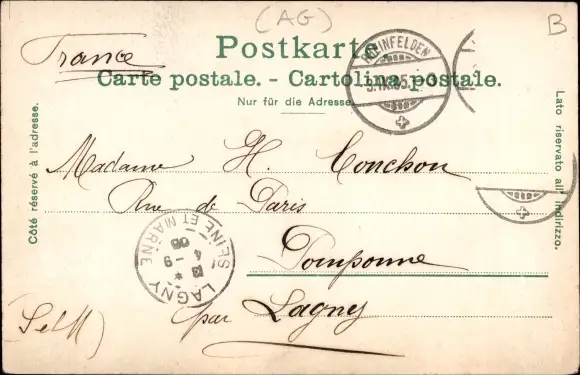 (AG)
B
France
Postkarte
Carte postale. - Cartolina postale.
Nur für die Adresse.
Côté réservé à l'adresse.
Lato riservato all' indirizzo.
RHEINFELDEN
Madame H. Conchon
Rue de Paris
Pomponne
par Lagny
LAGNY
SEINE ET MARNE
4 - 9
05